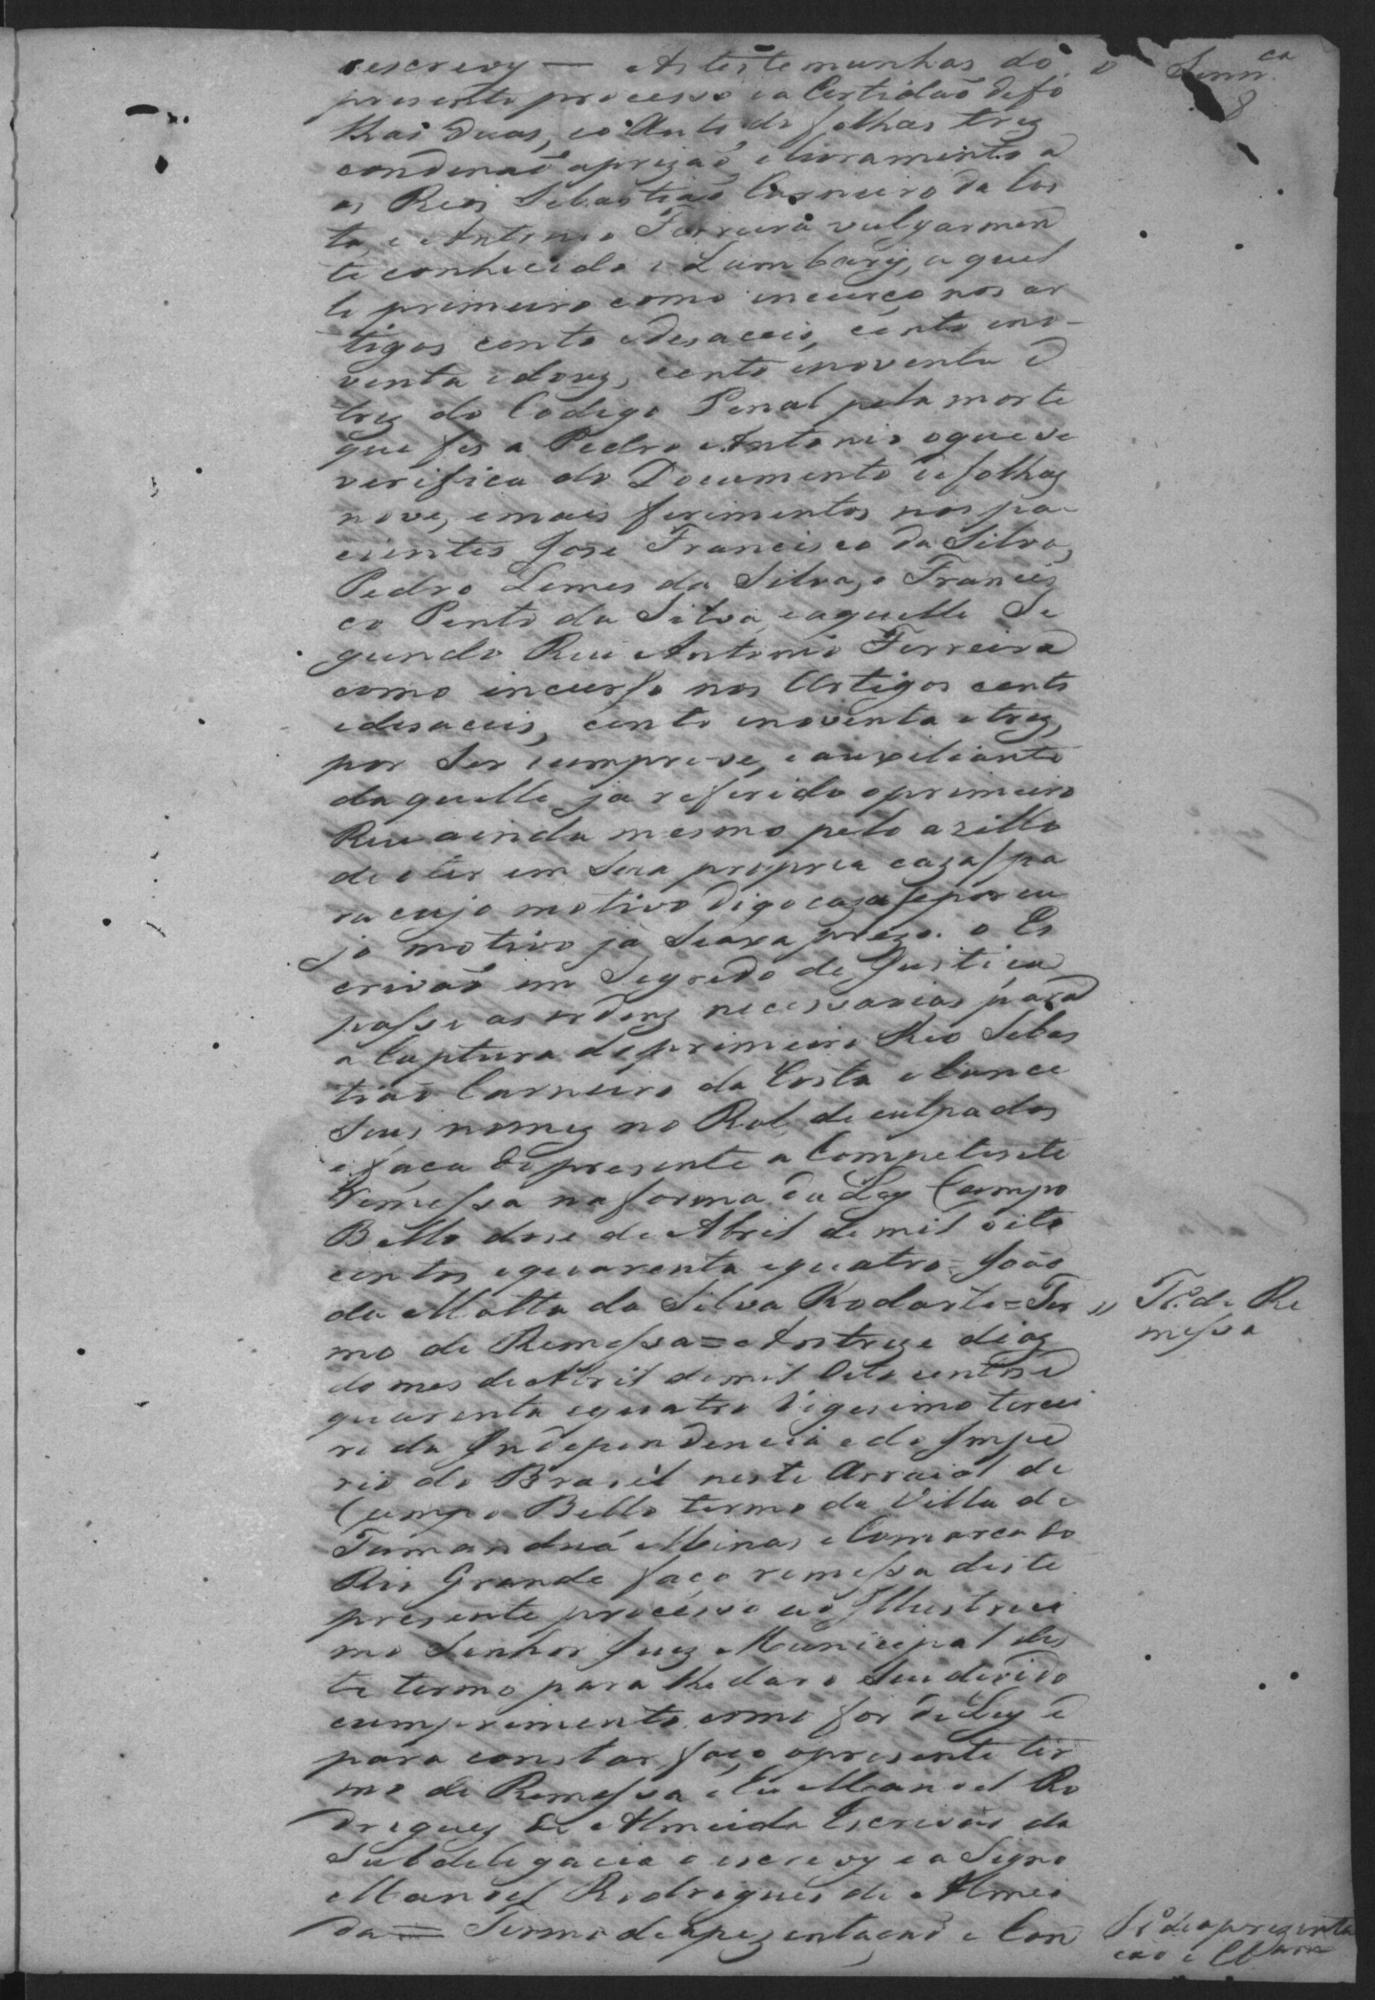 oescrevy — As testemunhas do " Senn.ca
presente processo ea Certidaõ de fo 8
lhas duas, eo Auto de folhas trez
condenaõ aprizaõ, e livramento a
os Reos Sebastiaõ Carneiro da Cos
ta, e Antonio Ferreira vulgarmen
te conhecido e Lambary, aquel
le primeiro como incurço nos ar
tigos cento edesaceis, cento eno-
venta edouz, cento enoventa e
trez do Codego Penal pela morte
que fes a Pedro Antonio oquese
verifica do Documento de folhas
nove, emais ferimentos nos pa
cientes Jose Francisco da Silva,
Pedro Lemes da Silva, e Francis
co Pinto da Silva, eaquelle Se
gundo Reu Antonio Ferreira
como incurso nos Artigos cento
edesaceis, cento enoventa etrez,
por Ser cumprese, eauxiliante
daquelle ja referido oprimeiro
Reu ainda mesmo pelo azillo
de oter em Sua propria caza pa
ra cujo motivo digo caza epor cu
jo motivo ja Seaxa prezo. o Es
crivaõ em Segredo de Justiça
passe as ordenz necessarias para
a Captura do primeiro Reo Sebas
tiaõ Carneiro da Costa elance
Seus nomez no Rol de culpados
efaça do presente a Competente
Remessa na forma da Ley Campo
Bello dose de Abril de mil oito
centos equarenta equatro = Joaõ
da Matta da Silva Rodarte = Ter " Tr.º de Re
mo de Remessa = Aos treze dias messa
do mes de Abril de mil Oito centos e
quarenta equatro Vigesimo tercei
ro da Independencia e do Impe
rio do Brasil neste Arraial de
Campo Bello termo da Villa de
Tamanduá Minas e Comarca do
Rio Grande faço remessa deste
presente processo ao Illustrissi
mo Senhor Juiz Municipal des
te termo para lhe dar o Seu devido
cumprimento como for de Ley e
para constar faço opresente ter
mo de Remessa e Eu Manoel Ro
drigues de Almeida Escrivaõ da
Subdelegacia o escrevy e a Signo
Manoel Rodrigues de Almei
da = Termo de apezentaçaõ e Con Tr.º de aprezenta
caõ e